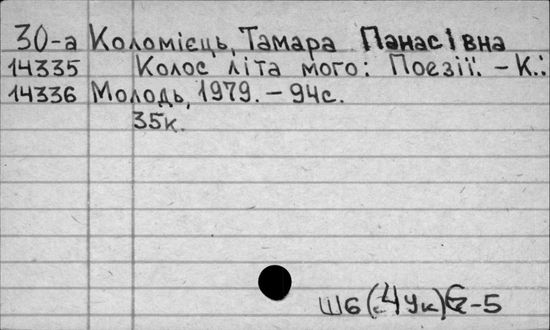 30-а Коломієць, Тамара Панасівна
14335 Колос літа мого: Поезії. - К.:
14336 Молодь, 1979. - 94с.
35к.
Ш6(4Ук)6-5